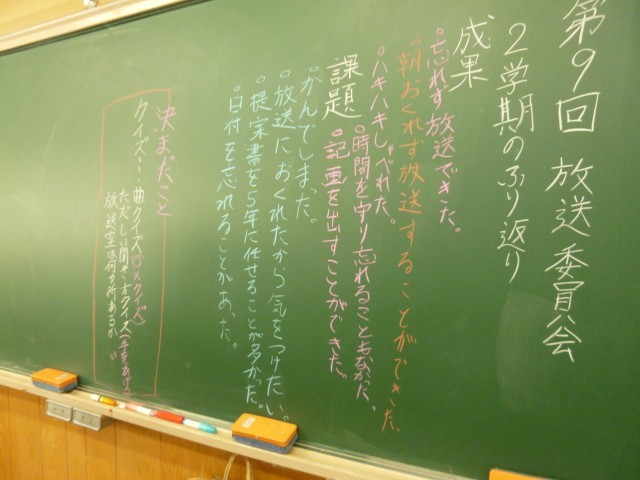 第9回 放送委員会
2学期のふり返り
成果
○忘れず放送できた。
○朝おくれず放送することができた。
○ハキハキしゃべれた。
○時間を守り忘れることもなかった。
○記画を出すことができた。
課題
○かんでしまった。
○放送におくれたから気をつけたい。
○提案書を5年に任せることが多かった。
○日付を忘れることがあった。
決まったこと
クイズ～曲クイズ(○×クイズ)
放送室は何か所あるか